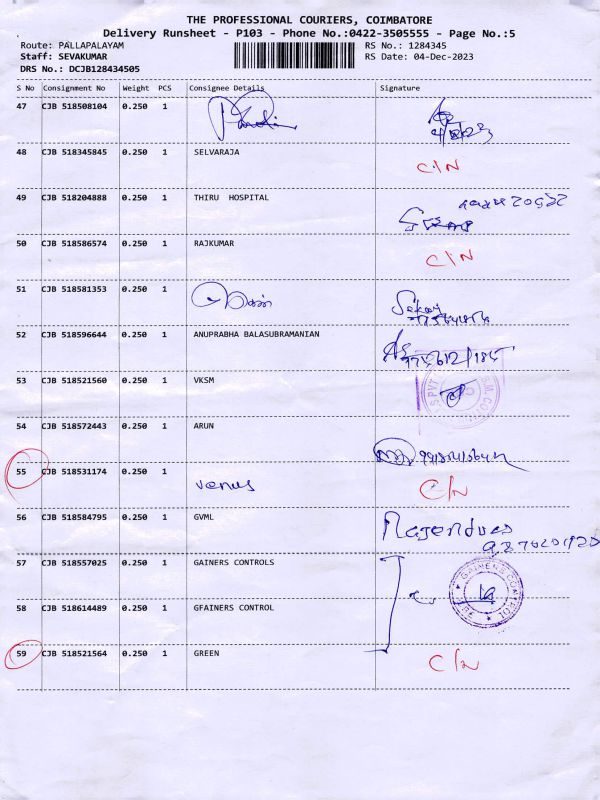 THE PROFESSIONAL COURIERS, COIMBATORE
Delivery Runsheet - P103 - Phone No.:0422-3505555 - Page No.:5
Route: PALLAPALAYAM RS No.: 1284345
Staff: SEVAKUMAR RS Date: 04-Dec-2023
DRS No.: DCJB128434505
S No Consignment No Weight PCS Consignee Details Signature
47 CJB 518508104 0.250 1
48 CJB 518345845 0.250 1 SELVARAJA C/N
49 CJB 518204888 0.250 1 THIRU HOSPITAL
50 CJB 518586574 0.250 1 RAJKUMAR C/N
51 CJB 518581353 0.250 1
52 CJB 518596644 0.250 1 ANUPRABHA BALASUBRAMANIAN
53 CJB 518521560 0.250 1 VKSM
54 CJB 518572443 0.250 1 ARUN
55 CJB 518531174 0.250 1 venus C/N
56 CJB 518584795 0.250 1 GVML
57 CJB 518557025 0.250 1 GAINERS CONTROLS
58 CJB 518614489 0.250 1 GFAINERS CONTROL
59 CJB 518521564 0.250 1 GREEN C/N